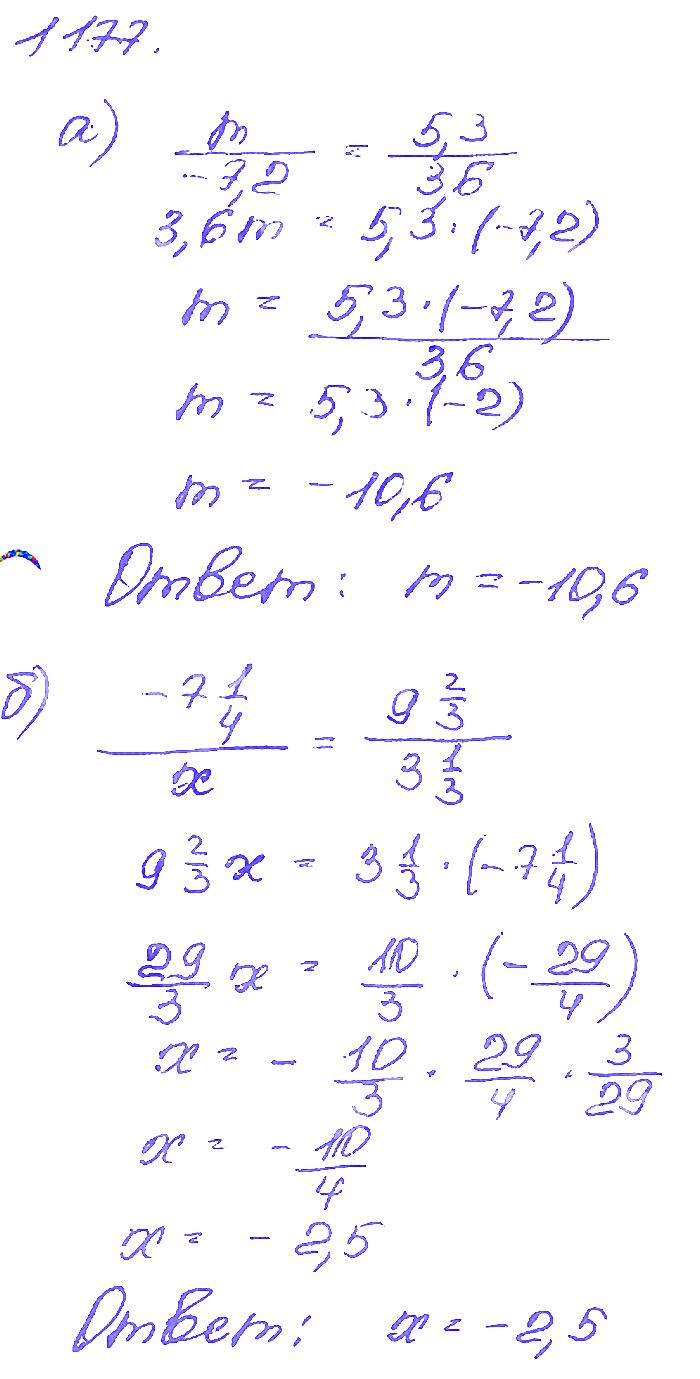 1177.
а) m/-7,2 = 5,3/3,6
3,6m = 5,3·(-7,2)
m = 5,3·(-7,2)/3,6
m = 5,3·(-2)
m = -10,6
Ответ: m = -10,6
б) -7 1/4 / x = 9 2/3 / 3 1/3
9 2/3 x = 3 1/3 · (-7 1/4)
29/3 x = 10/3 · (- 29/4)
x = - 10/3 · 29/4 · 3/29
x = - 10/4
x = - 2,5
Ответ: x = -2,5